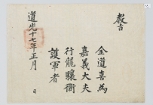 教旨
金道喜爲
嘉義大夫
行龍驤衛
護軍者
道光十七年正月 日